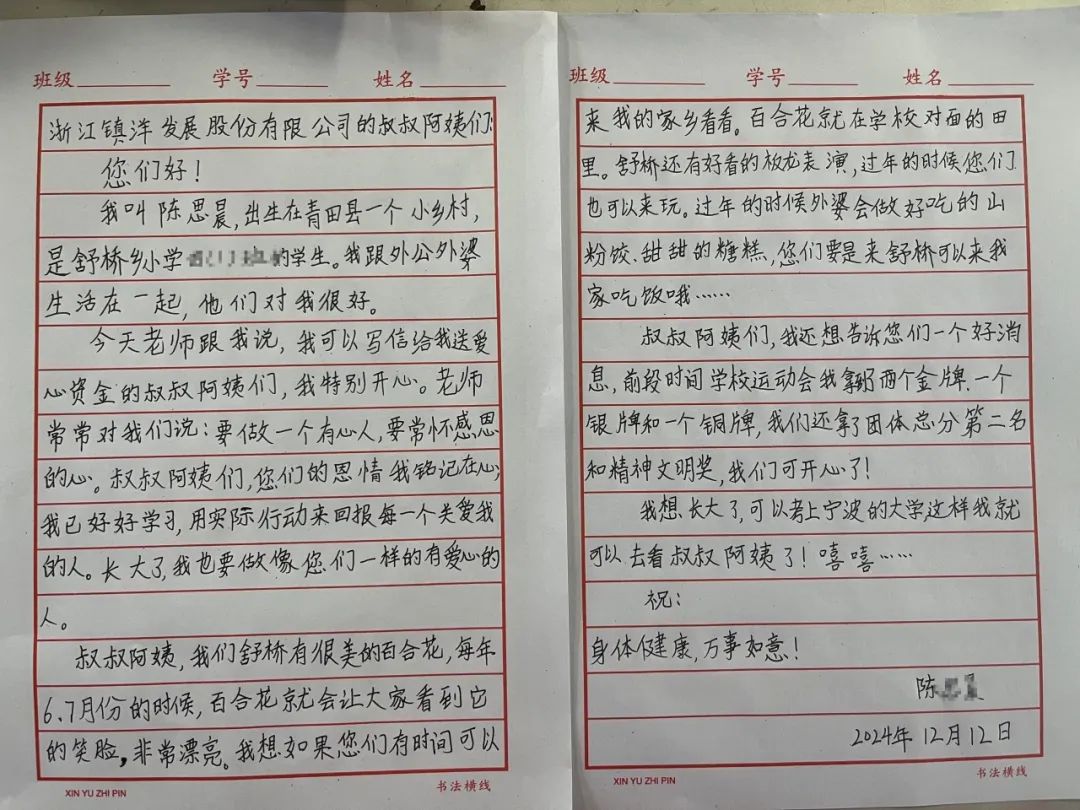 班级 学号 姓名
浙江镇洋发展股份有限公司的叔叔阿姨们:
您们好!
我叫陈思晨,出生在青田县一个小乡村,
是舒桥乡小学 的学生。我跟外公外婆
生活在一起,他们对我很好。
今天老师跟我说,我可以写信给我送爱
心资金的叔叔阿姨们,我特别开心。老师
常常对我们说:要做一个有心人,要常怀感恩
的心。叔叔阿姨们,您们的恩情我铭记在心;
我已好好学习,用实际行动来回报每一个关爱我
的人。长大了,我也要做像您们一样的有爱心的
人。
叔叔阿姨,我们舒桥有很美的百合花,每年
6、7月份的时候,百合花就会让大家看到它
的笑脸,非常漂亮。我想如果您们有时间可以
XIN YU ZHI PIN 书法横线
班级 学号 姓名
来我的家乡看看。百合花就在学校对面的田
里。舒桥还有好看的板龙表演,过年的时候您们
也可以来玩。过年的时候外婆会做好吃的山
粉饺、甜甜的糖糕,您们要是来舒桥可以来我
家吃饭哦……
叔叔阿姨们,我还想告诉您们一个好消
息,前段时间学校运动会我拿到了两个金牌、一个
银牌和一个铜牌,我们还拿了团体总分第二名
和精神文明奖,我们可开心了!
我想长大了,可以考上宁波的大学,这样我就
可以去看叔叔阿姨了!嘻嘻……
祝:
身体健康,万事如意!
陈
2024年12月12日
XIN YU ZHI PIN 书法横线